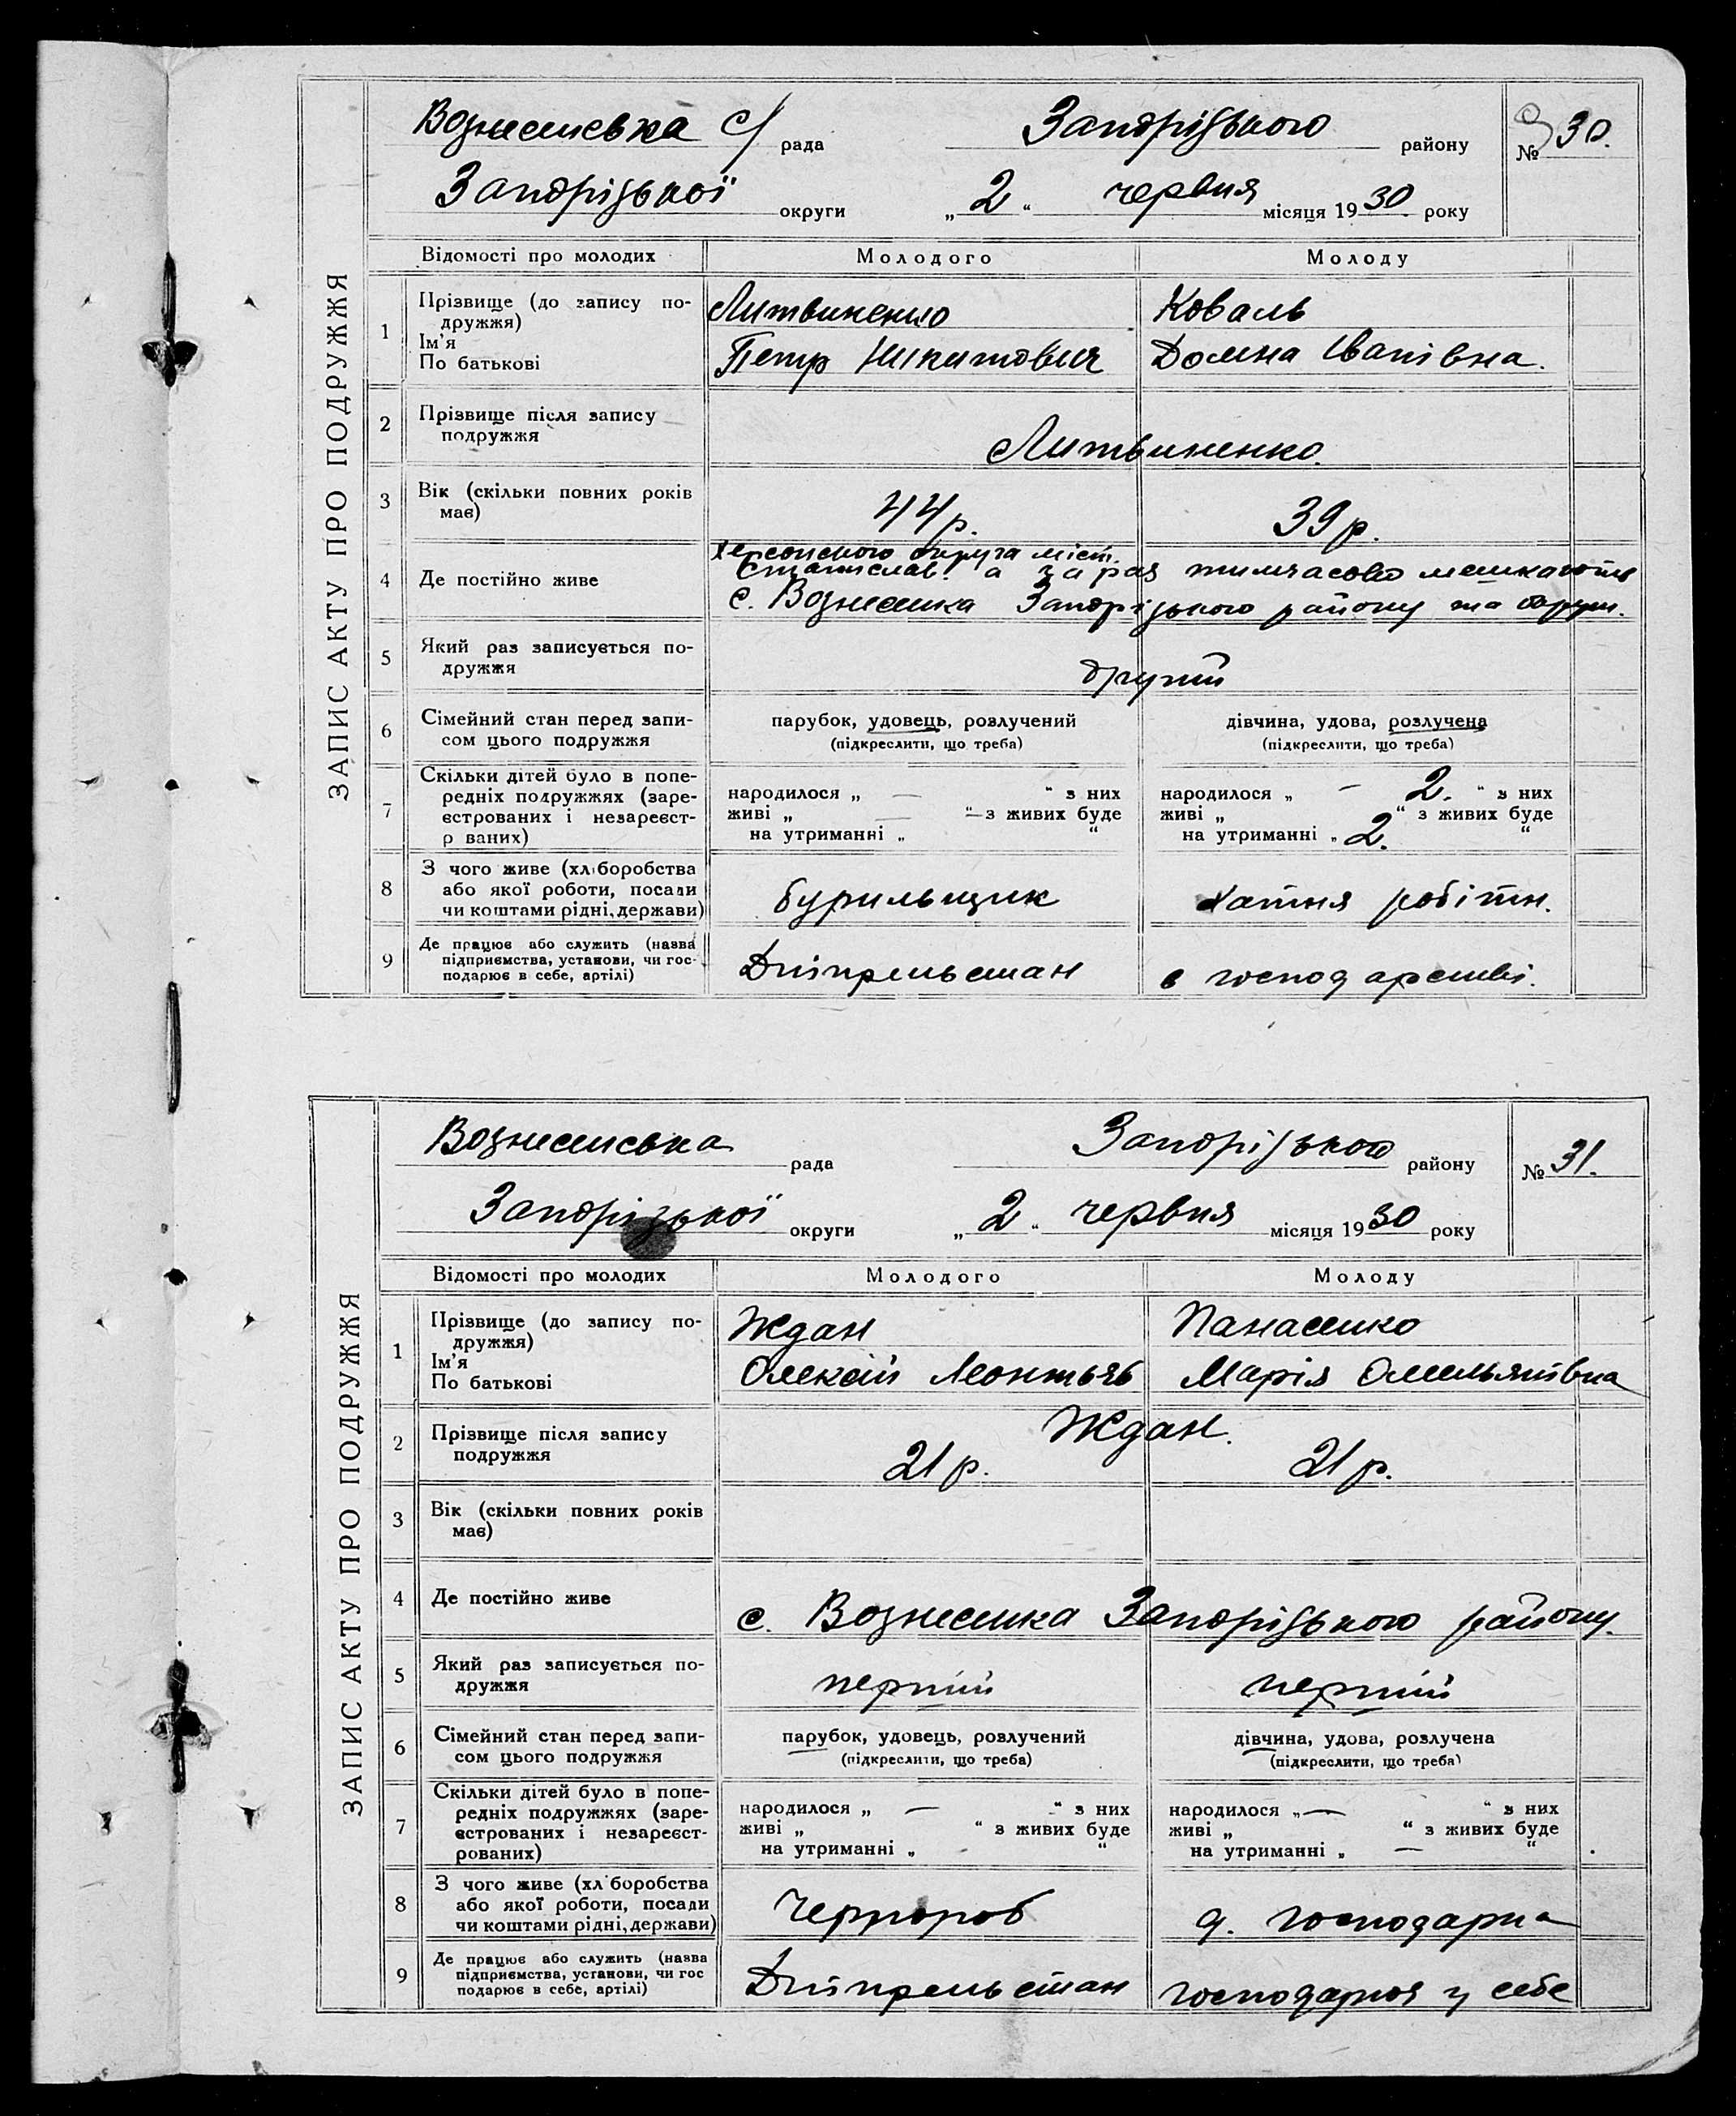 ЗАПИС АКТУ ПРО ПОДРУЖЖЯ
Вознесенська с/ рада Запорізького району № 30.
Запорізької округи „ 2 “ червня місяця 1930 року
Відомості про молодих Молодого Молоду
1 Прізвище (до запису по-
дружжя)
Ім'я
По батькові
Литвиненко
Петр Никитович
Коваль
Домна Іванівна.
2 Прізвище після запису
подружжя
Литвиненко.
3 Вік (скільки повних років
має)
44 р. 39 р.
4 Де постійно живе
Херсонського округа міст.
Станислав. а зараз тимчасово мешкають
с. Вознесенка Запорізького району та округи.
5 Який раз записується по-
дружжя
другий
6 Сімейний стан перед запи-
сом цього подружжя
парубок, удовець, розлучений
(підкреслити, що треба)
дівчина, удова, розлучена
(підкреслити, що треба)
7 Скільки дітей було в попе-
редніх подружжях (заре-
єстрованих і незареєст-
р ваних)
народилося „ — “ з них
живі „ — “ — з живих буде
на утриманні „ “
народилося „ — 2. “ з них
живі „ “ з живих буде
на утриманні „ 2. “
8 З чого живе (хліборобства
або якої роботи, посади
чи коштами рідні, держави)
бурильщик хатня робітн.
9 Де працює або служить (назва
підприємства, установи, чи гос-
подарює в себе, артілі)
Дніпрельстан в господарстві.
ЗАПИС АКТУ ПРО ПОДРУЖЖЯ
Вознесенська рада Запорізького району № 31.
Запорізької округи „ 2 “ червня місяця 1930 року
Відомості про молодих Молодого Молоду
1 Прізвище (до запису по-
дружжя)
Ім'я
По батькові
Ждан
Олексій Леонтьєв
Панасенко
Марія Омельянівна
2 Прізвище після запису
подружжя
Ждан.
21 р. 21 р.
3 Вік (скільки повних років
має)
4 Де постійно живе
с. Вознесенка Запорізького району.
5 Який раз записується по-
дружжя
перший перший
6 Сімейний стан перед запи-
сом цього подружжя
парубок, удовець, розлучений
(підкреслити, що треба)
дівчина, удова, розлучена
(підкреслити, що треба)
7 Скільки дітей було в попе-
редніх подружжях (заре-
єстрованих і незареєст-
рованих)
народилося „ — “ з них
живі „ “ з живих буде
на утриманні „ “
народилося „ — “ з них
живі „ “ з живих буде
на утриманні „ — “
8 З чого живе (хліборобства
або якої роботи, посади
чи коштами рідні, держави)
Чорнороб д. господарка
9 Де працює або служить (назва
підприємства, установи, чи гос
подарює в себе, артілі)
Дніпрельстан господарюя у себе